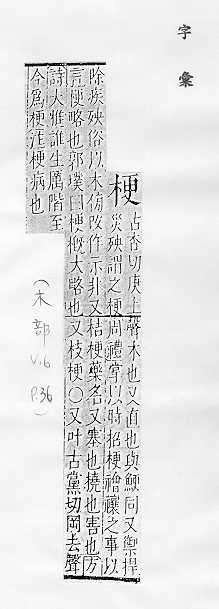 字彙
梗
古杏切庚上聲木也又直也與鯁同又禦捍
災殃謂之梗周禮掌以時招梗禬禳之事以
除疾殃俗以木傍改作示非又桔梗藥名又塞也撓也害也方
言梗略也郭璞曰梗槩大略也又枝梗○又叶古黨切岡去聲
詩大雅誰生厲階至
今爲梗注梗病也
(木部 V.6 P.36)